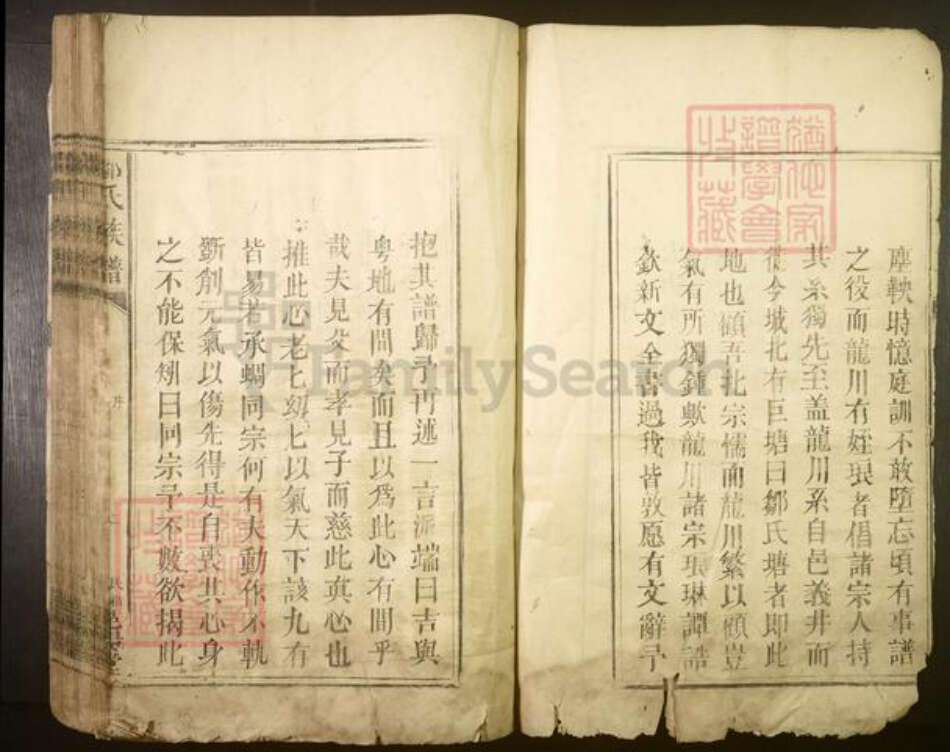 塵鞅時憶庭訓不敢墮忘頃有事譜
之役而龍川有姪琅者倡諸宗人持
其系獨先至盖龍川系自邑義井而
徙今城北有巨塘曰鄒氏塘者即此
地也顧吾北宗懦而龍川繁以頎豈
氣有所獨鍾歟龍川諸宗琅琳譚誥
欽新文全書過我皆敦愿有文辭予
抱其譜歸予再述一言派端曰吉與
粤地有間矣而且以為此心有間乎
哉夫見父而孝見子而慈此真心也
推此心老七幼七以氣天下該九有
皆易若承蜩同宗何有夫動作不軌
斵削元氣以傷先得是自喪其心身
之不能保矧曰同宗予不敏欲揭此
氏族譜
譜學會
收藏
FamilySearch